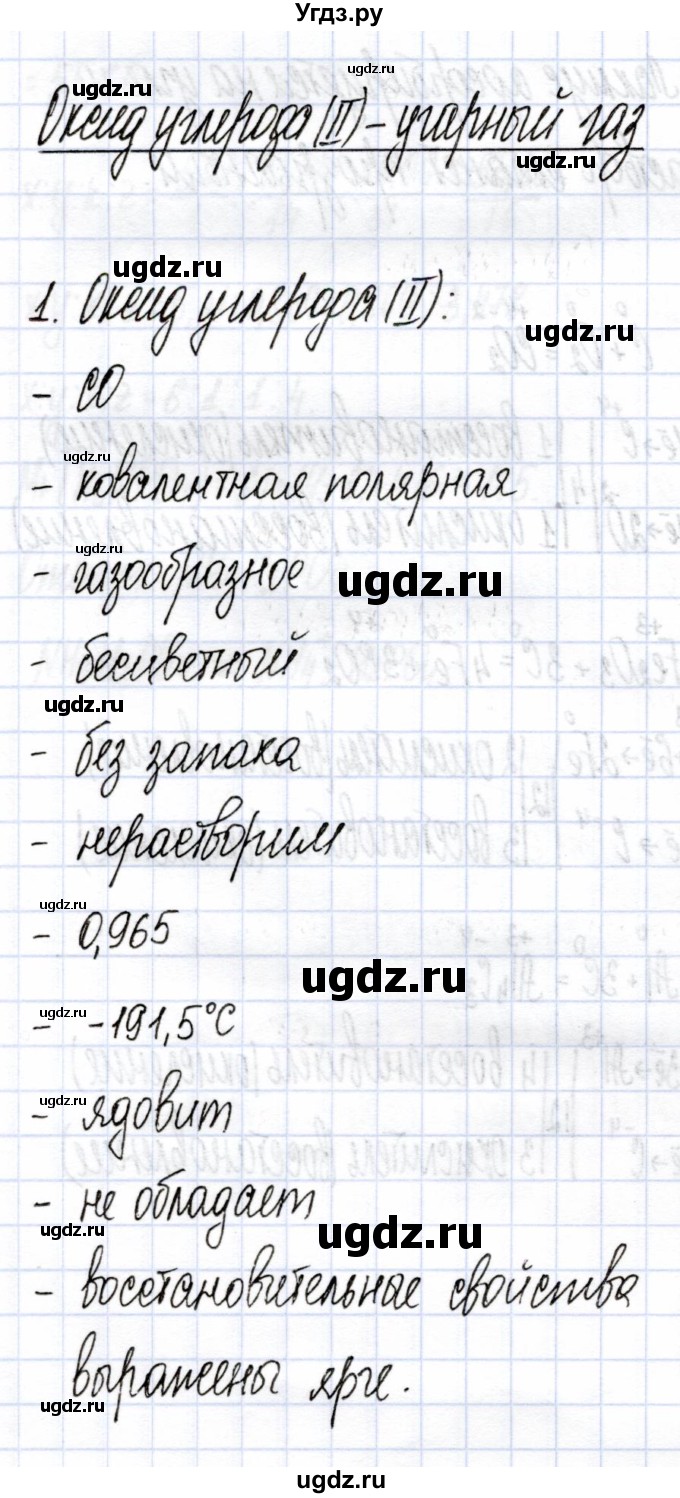 Угдз.ру
ugdz.ru
ugdz.ru
Оксид углерода (II) - угарный газ
ugdz.ru
ugdz.ru
1. Оксид углерода (II):
ugdz.ru
- CO
ugdz.ru
- ковалентная полярная
ugdz.ru
- газообразное
ugdz.ru
- бесцветный
ugdz.ru
- без запаха
- нерастворим
ugdz.ru
- 0,965
ugdz.ru
ugdz.ru
- -191,5°C
ugdz.ru
- ядовит
- не обладает
ugdz.ru
ugdz.ru
- восстановительные свойства
выражены ярче.
ugdz.ru
ugdz.ru